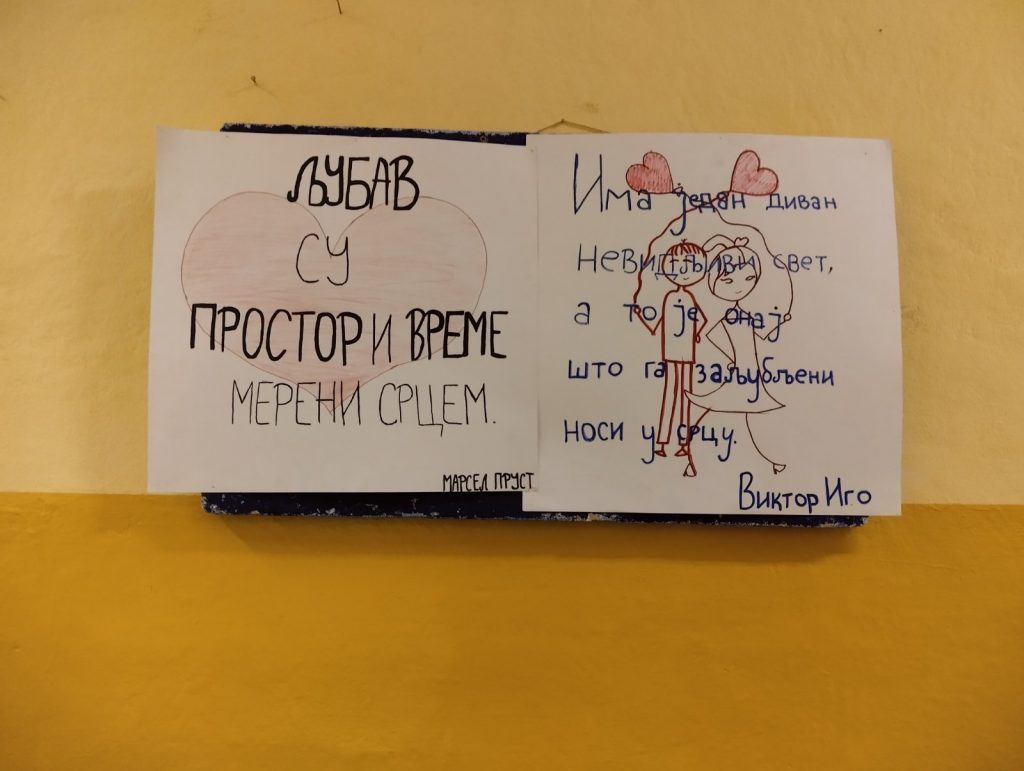 ЉУБАВ
СУ
ПРОСТОР И ВРЕМЕ
МЕРЕНИ СРЦЕМ.
МАРСЕЛ ПРУСТ
Има један диван
невидљиви свет,
а то је онај
што га заљубљени
носи у срцу.
Виктор Иго